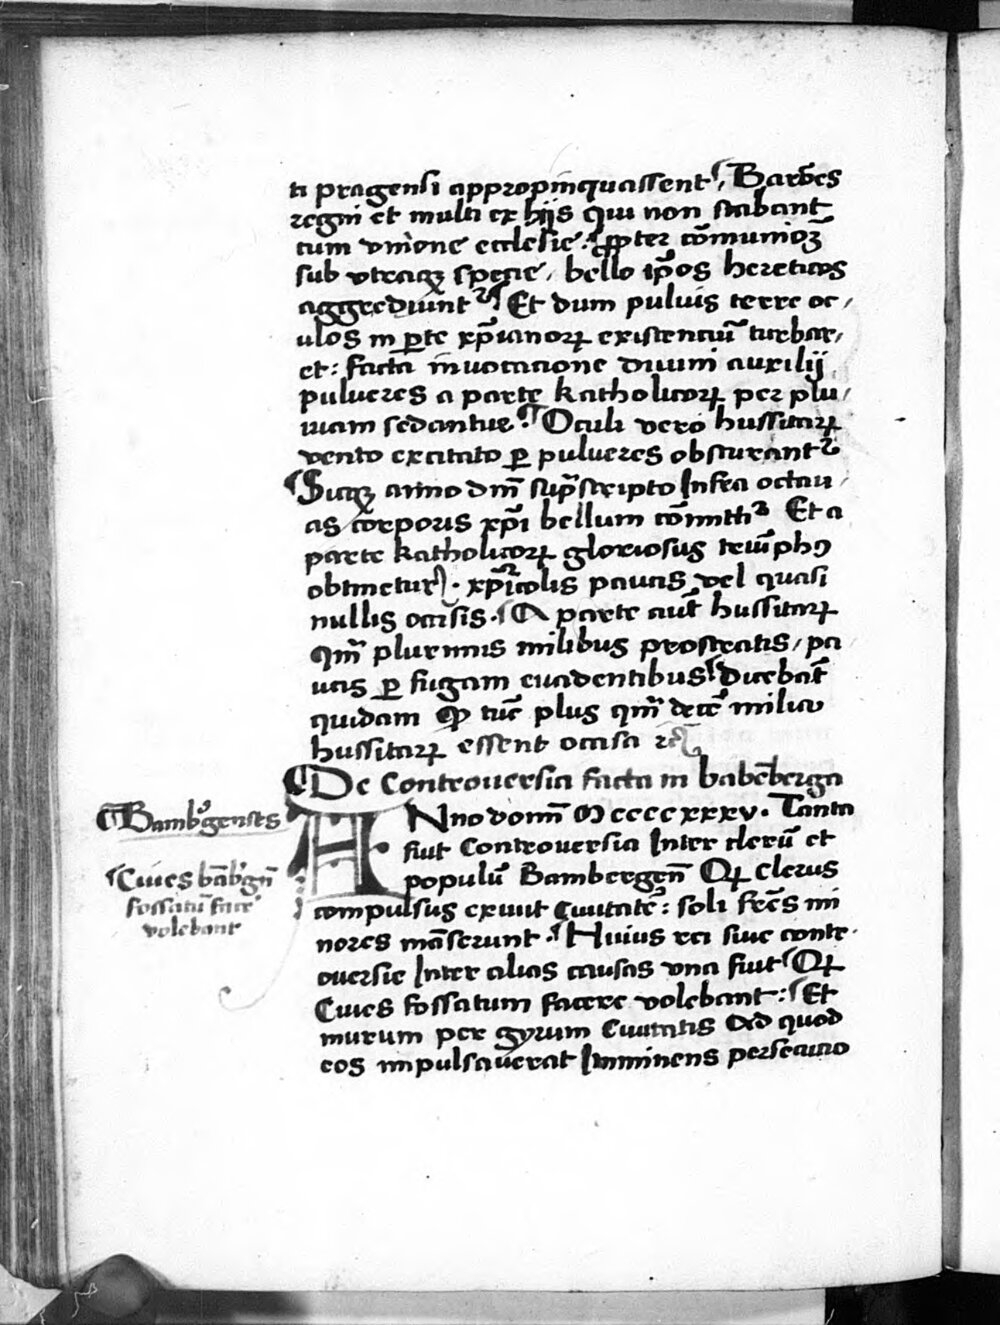 ti pragensi appropinquassent / Baro̅es
regni et multi ex hijs qui non stabant
cum vnione ecclesie . ꝓpter co̅munioꝫ
sub vtraqꝫ specie / bello ip̅os hereticos
aggrediunt᷑ Et dum puluis terre oc /
ulos in ꝑte xp̅ianoꝝ existenciu̅ turbar /
et : facta inuocacione diuini auxilij
pulueres a parte katholicoꝝ per plu /
uiam sedantur . Oculi vero hussitaꝝ
vento excitato ꝑ pulueres obscurant᷑
Sicqꝫ anno dm̅ sup̅scripto Infra octau /
as corporis xp̅i bellum co̅mittit᷑ Et a
parte katholicoꝝ gloriosus triu̅phꝯ
obtinetur . xp̅icolis paucis vel quasi
nullis occisis . A parte aut̅ hussitaꝝ
qm̅ plurimis milibus prostratis / pa
ucis ꝑ fugam euadentibus Dicebat̅
quidam ꝙ tu̅c plus qm̅ dece̅ milia
hussitaꝝ essent occisa
De Controuersia facta in babe̅berga
Bamb᷑genses
ANno domi̅ Mccccxxxv . Tanta
fuit Controuersia Inter cleru̅ et
populu̅ Bambergen̅ Qꝝ clerus
Ciues ba̅b᷑gn̅
fossatu̅ fac᷑e
volebant
compulsus exiuit Ciuitate̅ : soli fr̅es mi
nores ma̅serunt . Huius rei siue contr
ouersie Inter alias causas vna fuit Qꝝ
Ciues fossatum facere volebant : Et
murum per gyrum Ciuitatis Ad quod
eos impulsauerat Imminens persecutio